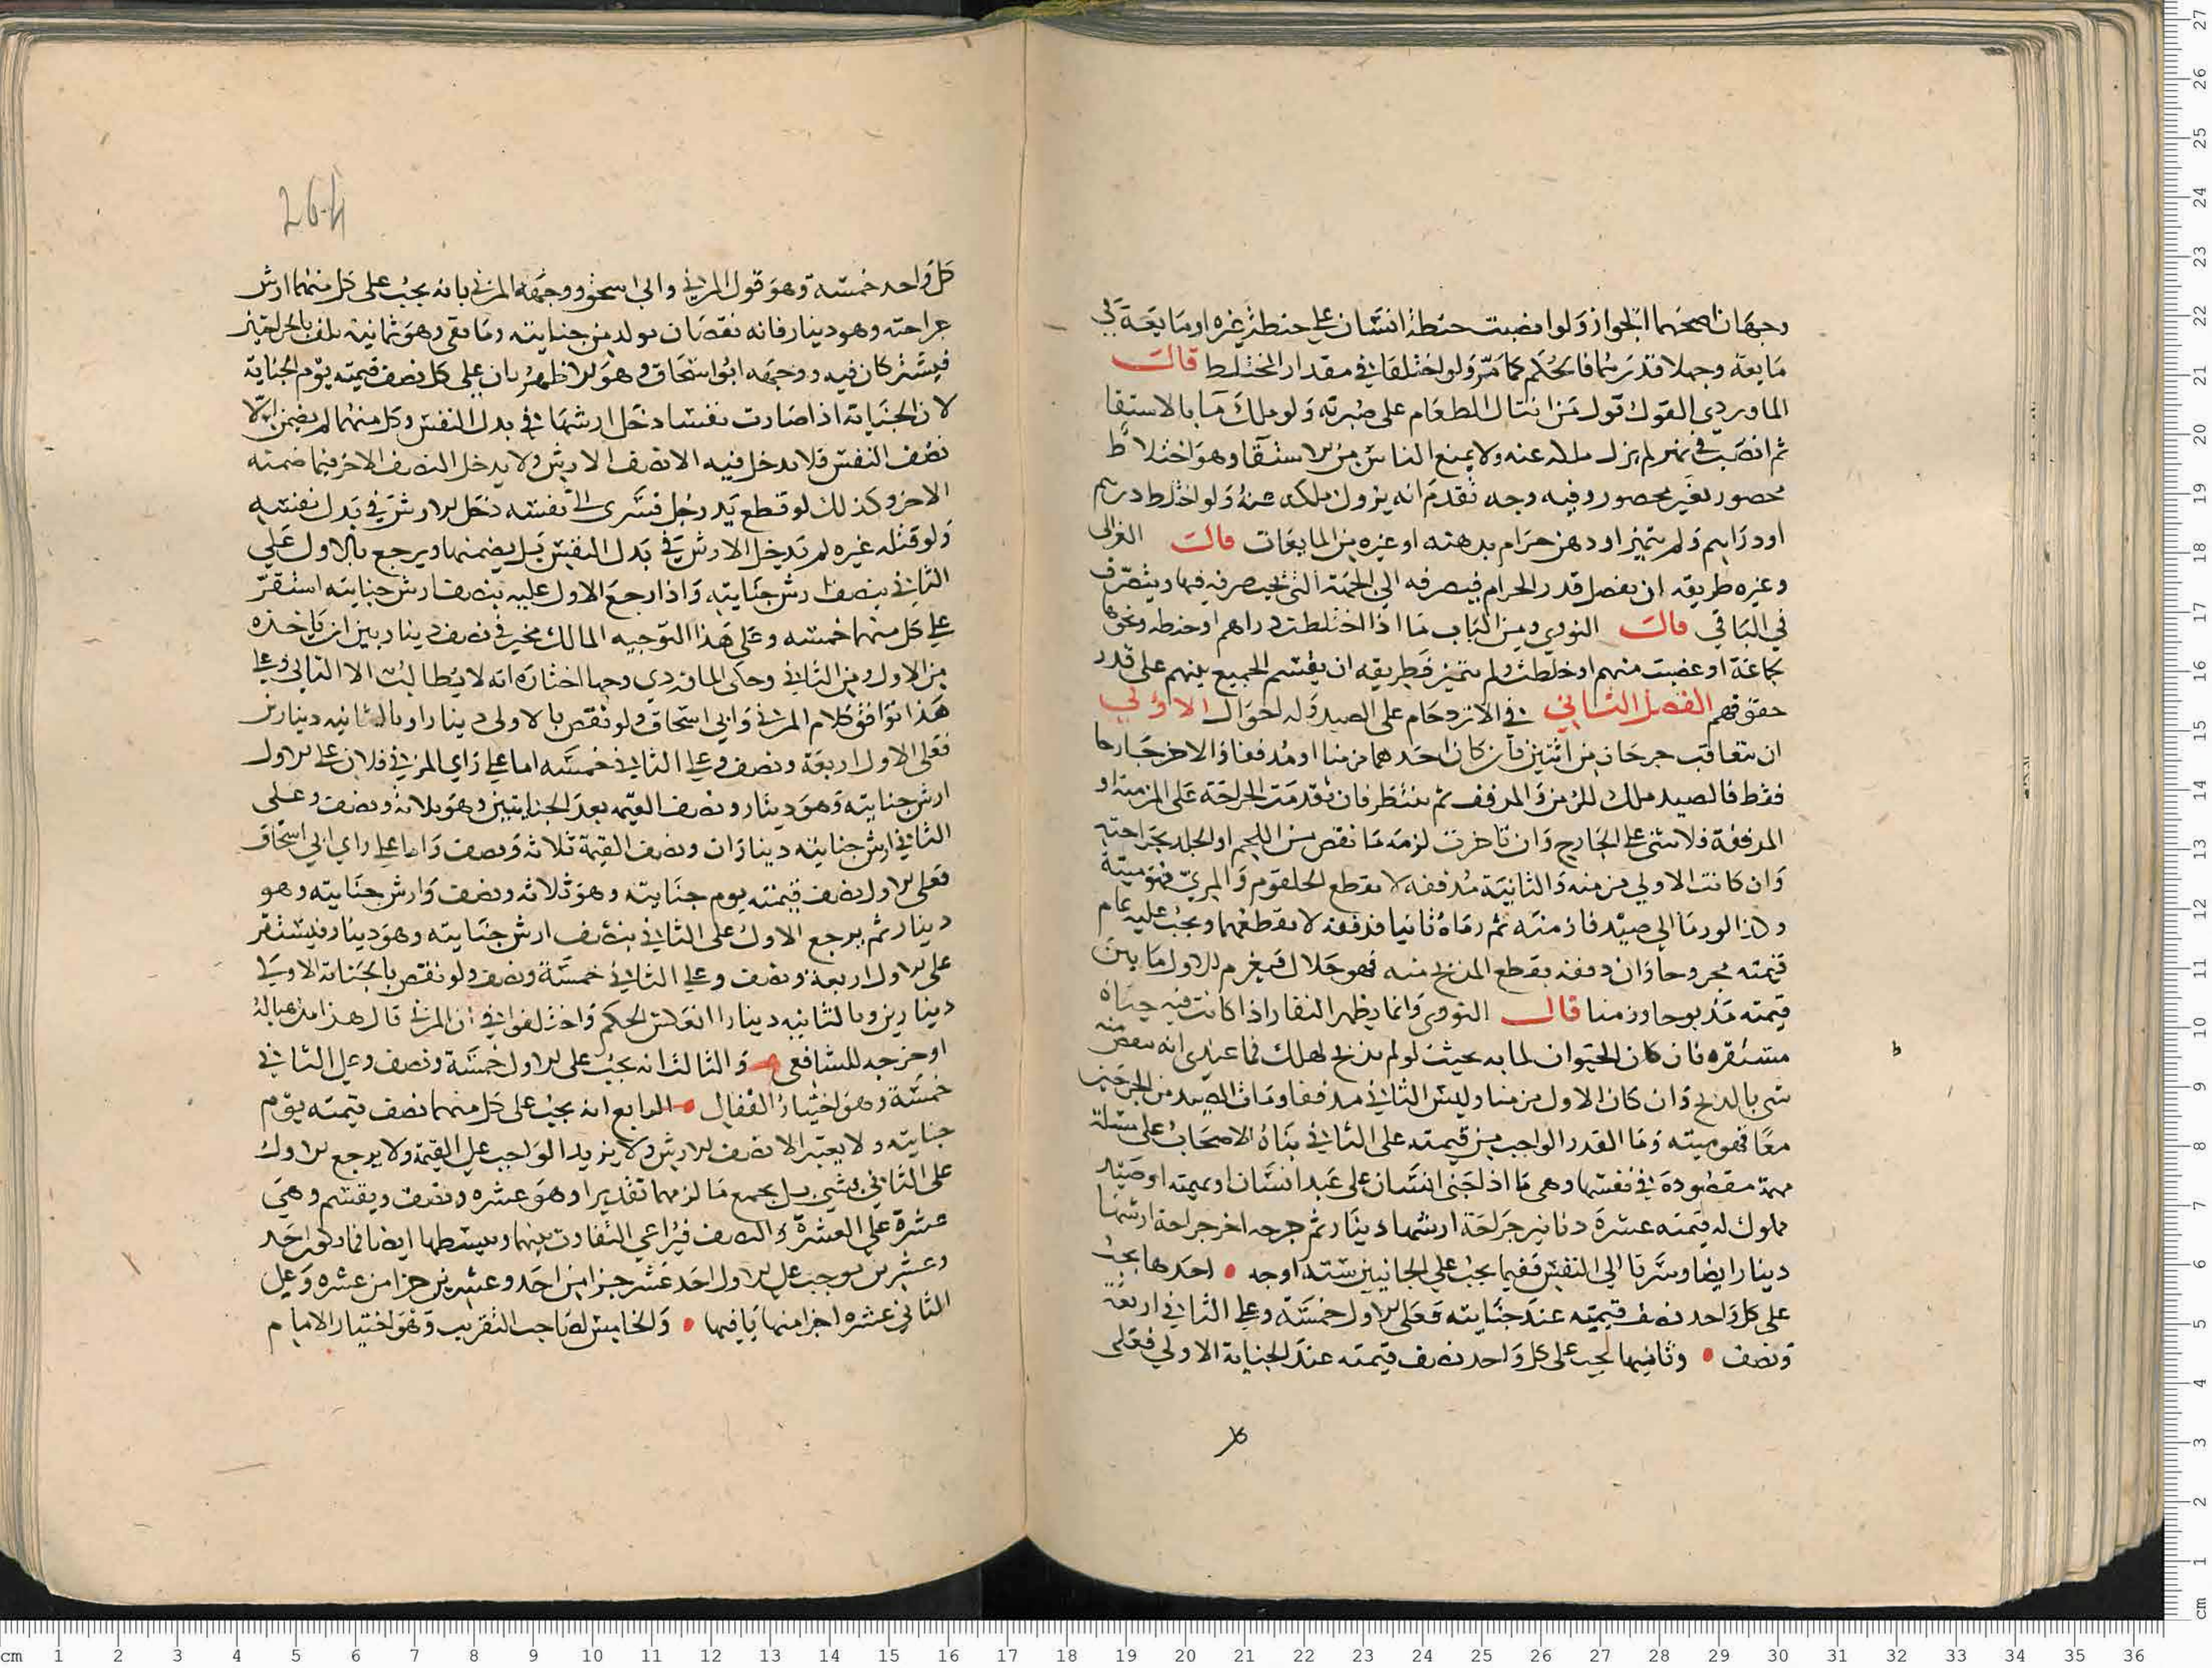 وجهان اصحهما الجواز ولو انصبت حنطة انسان على حنطة غيره او مايعة في
مايعة وجهلا قدرهما فالحكم كما مر ولو اختلفا في مقدار المختلط قالت
الماوردي القول قول من انتال الطعام على صبرته ولو ملك ما بالاستقا
ثم انصب في نهر لم يزل ملكه عنه ولا يمنع الناس من الاستقا وهو اختلاط
محصور بغير محصور وفيه وجه تقدم انه يزول ملكه عنه ولو اختلط درهم
او دراهم ولم يتميز او دهن حرام بدهنه او غيره من المايعات قالت الغزالى
وغيره طريقه ان يفصل قدر الحرام فيصرفه الى الجهة التي يجب صرفه فيها ويتصرف
في الباقي قالت النووي ومن الباب ما اذا اختلطت دراهم او حنطه ونحوها
لجماعة او غصبت منهم او خلطت ولم تتميز فطريقه ان يقسم الجميع بينهم على قدر
حقوقهم الفصل الثاني في الازدحام على الصيد وله احوال الاولي
ان يتعاقب جرحان من اثنين فان كان احدهما مزمنا او مدففا والاخر جارحا
فقط فالصيد ملك للمزمن والمدفف ثم ينتظر فان تقدمت الجراحة على المزمنة او
المدففة فلا شي على الجارح وان تاخرت لزمه ما نقص من اللحم او الجلد بجراحته
وان كانت الاولي مزمنه والثانية مدففه لا بقطع الحلقوم والمري فهو ميتة
وكذا لو رما الى صيد فازمنه ثم رماه ثانيا فدففه لا بقطعهما ويجب عليه تمام
قيمته مجروحا وان دففه بقطع المذبح منه فهو حلال فيغرم للاول ما بين
قيمته مذبوحا ومزمنا قال النووي وانما يظهر التفاوت اذا كانت فيه حياة
مستقره فان كان الحيوان لما به بحيث لو لم يذبح لهلك فما عندي انه ينقص منه
شي بالذبح وان كان الاول مزمنا وليس الثاني مدففا ومات الصيد من الجرحين
معا فهو ميته وما القدر الواجب من قيمته على الثاني بناه الاصحاب على مسئلة
مهمة مقصودة في نفسها وهى ما اذا جنى انسان على عبد انسان او بهيمته او صيد
مملوك له قيمته عشرة دنانير جراحة ارشها دينار ثم جرحه اخر جراحة ارشها
دينار ايضا وسرتا الى النفس ففيما يجب على الجانيين ستة اوجه • احدها يجب
على كل واحد نصف قيمته عند جنايته فعلى الاول خمسة وعلى الثاني اربعة
ونصف • وثانيها يجب على كل واحد نصف قيمته عند الجناية الاولي فعلى
264
كل واحد خمسه وهو قول المزني وابي اسحق ووجهه المزني بانه يجب على كل منهما ارش
جراحته وهو دينار فانه نقصان تولد من جنايته وما بقي وهو ثمانية تلف بالجراحتين
فيشتركان فيه ووجهه ابو اسحاق وهو الاظهر بان على كل نصف قيمته يوم الجناية
لان الجناية اذا صارت نفسا دخل ارشها في بدل النفس وكل منهما لم يضمن الا
نصف النفس فلا يدخل فيه الا نصف الارش ولا يدخل النصف الاخر فيما ضمنه
الاخر وكذلك لو قطع يد رجل فسرى الى نفسه دخل الارش في بدل نفسه
ولو قتله غيره لم يدخل الارش في بدل النفس بل يضمنها ويرجع بالاول على
الثاني بنصف ارش جنايته واذا رجع الاول عليه بنصف ارش جنايته استقر
على كل منهما خمسه وعلى هذا التوجيه المالك مخير في نصف دينار بين ان ياخذه
من الاول ومن الثاني وحكى الماوردي وجها اختاره انه لا يطالب الا الثاني وعلى
هذا توافق كلام المزني وابي اسحاق ولو نقص بالاولى دينارا وبالثانيه دينارين
فعلى الاول اربعة ونصف وعلى الثاني خمسه اما على راي المزني فلان على الاول
ارش جنايته وهو دينار ونصف القيمه بعد الجنايتين وهو ثلاثة ونصف وعلى
الثاني ارش جنايته ديناران ونصف القيمة ثلاثه ونصف واما على راي ابي اسحاق
فعلى الاول نصف قيمته يوم جنايته وهو ثلاثه ونصف وارش جنايته وهو
دينار ثم يرجع الاول على الثاني بنصف ارش جنايته وهو دينار فيستقر
على الاول اربعة ونصف وعلى الثاني خمسة ونصف ولو نقص بالجناية الاولي
دينارين وبالثانيه دينارا انعكس الحكم واختلفوا في ان المزني قال هذا مذهبا له
او خرجه للشافعي والثالث انه يجب على الاول خمسة ونصف وعلى الثاني
خمسة وهو اختيار القفال • الرابع انه يجب على كل منهما نصف قيمته يوم
جنايته ولا يعتبر الا نصف الارش ولا يزيد الواجب على القيمة ولا يرجع الاول
على الثاني بشي بل يجمع ما لزمهما تقديرا وهو عشره ونصف ويقسم وهي
عشرة على العشرة والنصف فيراعي التفاوت بينهما ويبسطها ايضا فما دلوا احد
وعشرين يوجب على الاول احد عشر جزا من احد وعشرين جزا من عشره وعلى
الثاني عشره اجزا منها يافيها • والخامس لصاحب التقريب وهو اختيار الامام